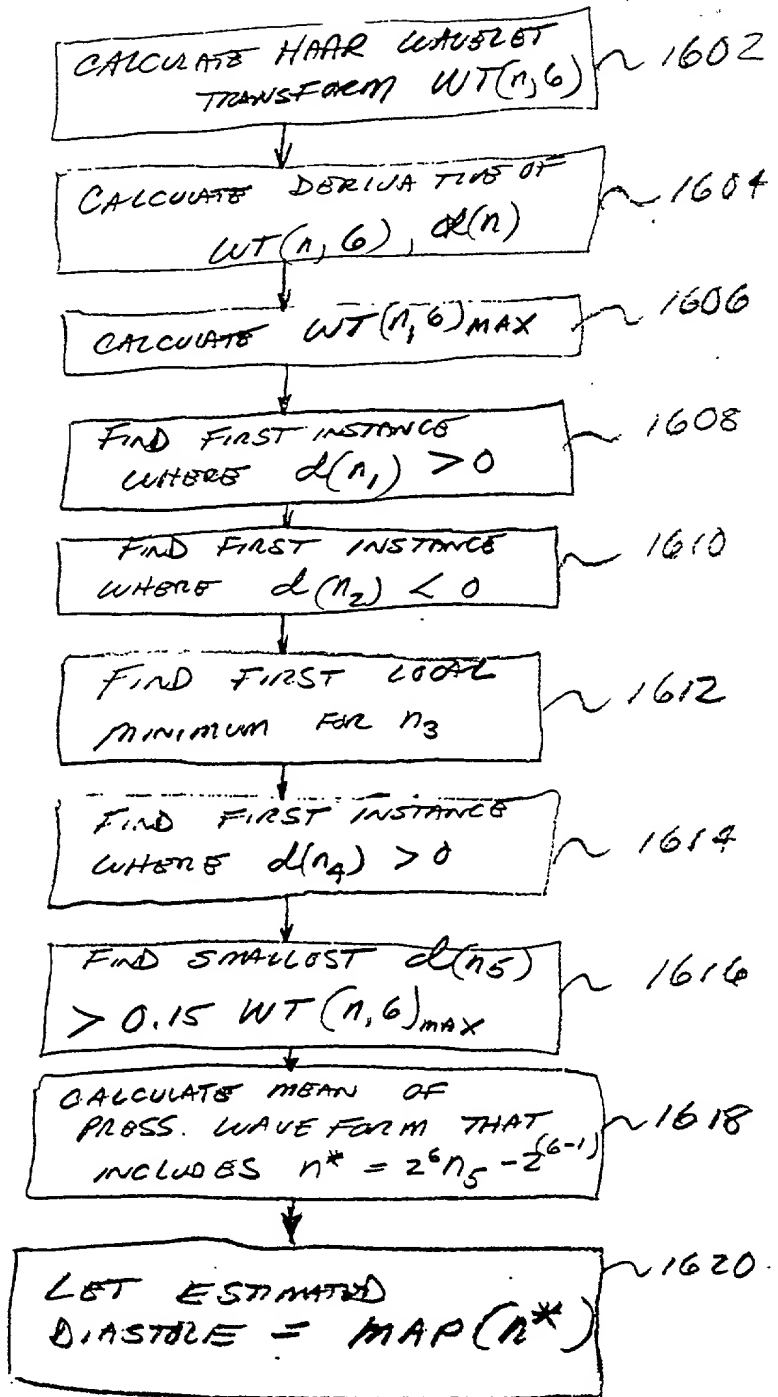 CALCULATE HAAR WAVELET
TRANSFORM WT(n,6)
1602
CALCULATE DERIVATIVE OF
WT(n,6), d(n)
1604
CALCULATE WT(n,6)MAX
1606
FIND FIRST INSTANCE
WHERE d(n₁) > 0
1608
FIND FIRST INSTANCE
WHERE d(n₂) < 0
1610
FIND FIRST LOCAL
MINIMUM FOR n₃
1612
FIND FIRST INSTANCE
WHERE d(n₄) > 0
1614
FIND SMALLOST d(n₅)
> 0.15 WT(n,6)MAX
1616
CALCULATE MEAN OF
PRESS. WAVE FORM THAT
INCLUDES n* = 2⁶n₅ - 2⁽⁶⁻¹⁾
1618
LET ESTIMATED
DIASTOLE = MAP(n*)
1620